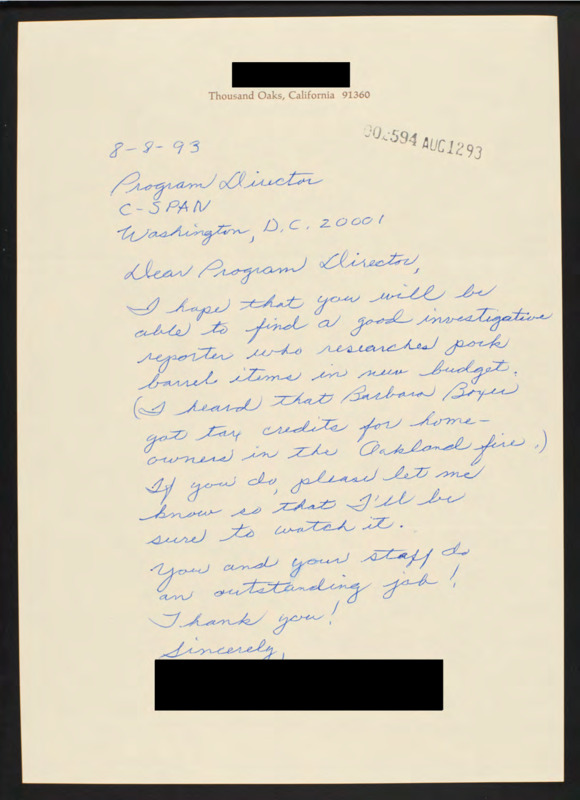 Thousand Oaks, California 91360
002594 AUG1293
8-8-93
Program Director
C-SPAN
Washington, D.C. 20001
Dear Program Director,
I hope that you will be
able to find a good investigative
reporter who researches pork
barrel items in new budget.
(I heard that Barbara Boxer
got tax credits for home-
owners in the Oakland fire.)
If you do, please let me
know so that I'll be
sure to watch it.
You and your staff do
an outstanding job!
Thank you!
Sincerely,